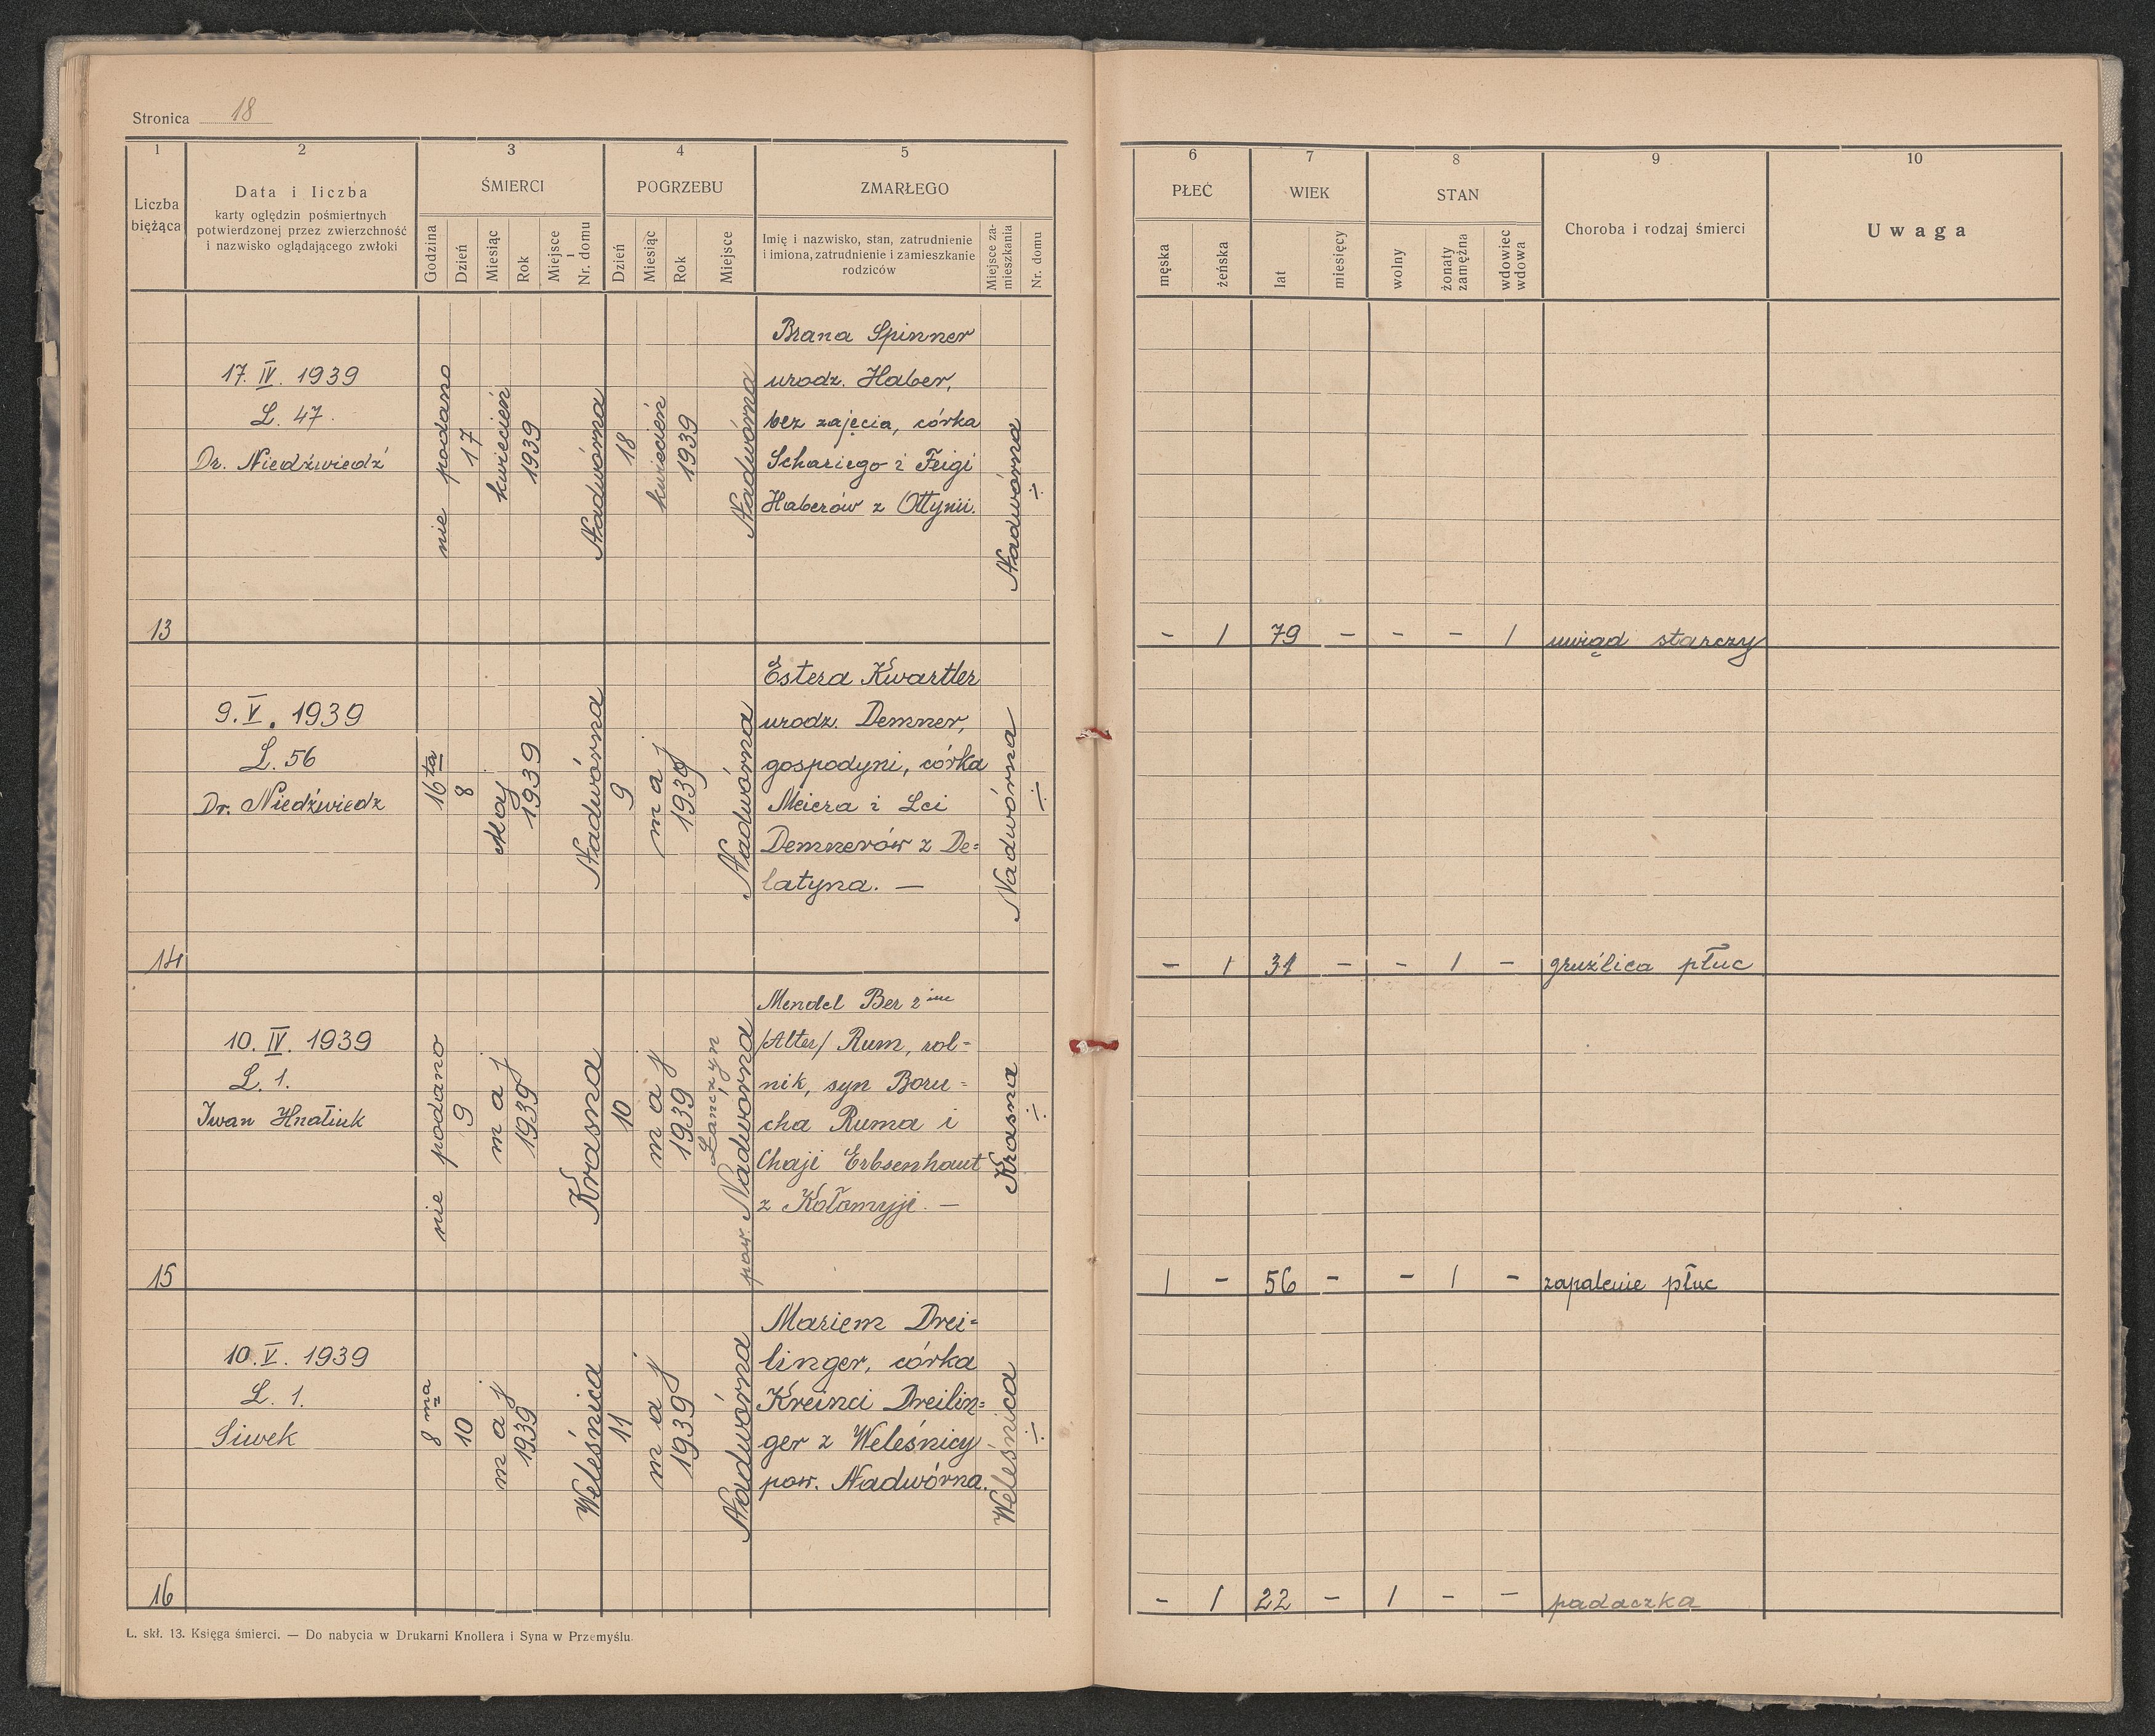 Stronica 18
1 2 3 4 5
Liczba bieżąca
Data i liczba
karty oględzin pośmiertnych
potwierdzonej przez zwierzchność
i nazwisko oglądającego zwłoki
ŚMIERCI
Godzina
Dzień
Miesiąc
Rok
Miejsce i Nr. domu
POGRZEBU
Dzień
Miesiąc
Rok
Miejsce
ZMARŁEGO
Imię i nazwisko, stan, zatrudnienie
i imiona, zatrudnienie i zamieszkanie
rodziców
Miejsce za-
mieszkania
Nr. domu
6 7 8 9 10
PŁEĆ
męska
żeńska
WIEK
lat
miesięcy
STAN
wolny
żonaty
zamężna
wdowiec
wdowa
Choroba i rodzaj śmierci
Uwaga
13
17. IV. 1939
L. 47.
Dr. Niedźwiedź
nie podano
17
kwiecień
1939
Nadwórna
18
kwiecień
1939
Nadwórna
Brana Spinner
urodz. Haber,
bez zajęcia, córka
Schariego i Feigi
Haberów z Ottynii.
Nadwórna
÷
- 1 79 - - - 1 uwiąd starczy
14
9. V. 1939
L. 56
Dr. Niedźwiedz
16ta
8
Maj
1939
Nadwórna
9
maj
1939
Nadwórna
Estera Kwartler
urodz. Demner,
gospodyni, córka
Meiera i Lei
Demnerów z De=
latyna. —
Nadwórna
÷
- 1 31 - - 1 - gruźlica płuc
15
10. IV. 1939
L. 1.
Iwan Hnatiuk
nie podano
9
maj
1939
Krasna
10
maj
1939
Łanczyn
pow. Nadwórna
Mendel Ber 2 im
/Alter/ Rum, rol=
nik, syn Boru=
cha Ruma i
Chaji Erbsenhaut
z Kołomyji. —
Krasna
÷
1 - 56 - - 1 - zapalenie płuc
16
10. V. 1939
L. 1.
Siwek
8 ma
10
maj
1939
Weleśnica
11
maj
1939
Nadwórna
Mariem Drei=
linger, córka
Kreinci Dreilin=
ger z Weleśnicy
pow. Nadwórna.
Weleśnica
÷
- 1 22 - 1 - - padaczka
L. skł. 13. Księga śmierci. — Do nabycia w Drukarni Knollera i Syna w Przemyślu.